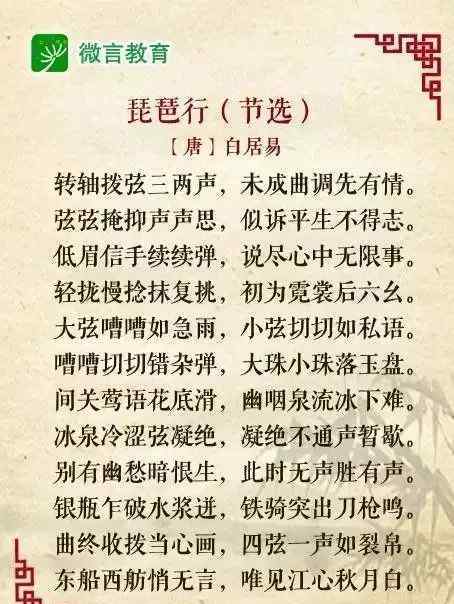 微言教育
琵琶行（节选）
【唐】白居易
转轴拨弦三两声，未成曲调先有情。
弦弦掩抑声声思，似诉平生不得志。
低眉信手续续弹，说尽心中无限事。
轻拢慢捻抹复挑，初为霓裳后六幺。
大弦嘈嘈如急雨，小弦切切如私语。
嘈嘈切切错杂弹，大珠小珠落玉盘。
间关莺语花底滑，幽咽泉流冰下难。
冰泉冷涩弦凝绝，凝绝不通声暂歇。
别有幽愁暗恨生，此时无声胜有声。
银瓶乍破水浆迸，铁骑突出刀枪鸣。
曲终收拨当心画，四弦一声如裂帛。
东船西舫悄无言，唯见江心秋月白。